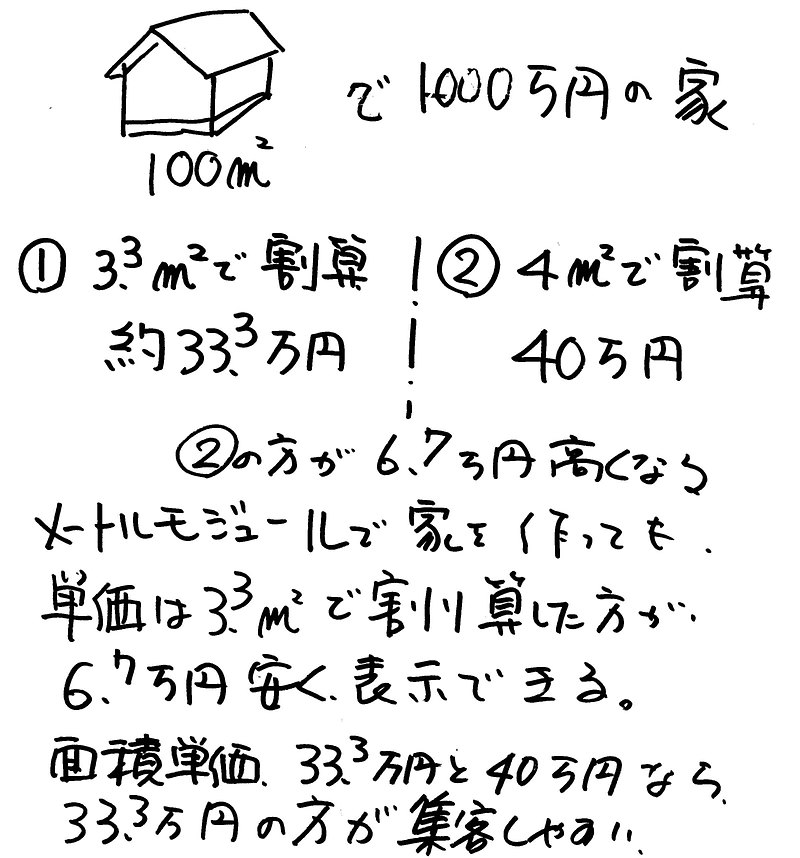 で1000万円の家
100m²
① 3.3m²で割算
約33.3万円
② 4m²で割算
40万円
②の方が6.7万円高くなる
メートルモジュールで家を作っても、
単価は3.3m²で割り算した方が、
6.7万円安く表示できる。
面積単価、33.3万円と40万円なら、
33.3万円の方が集客しやすい、